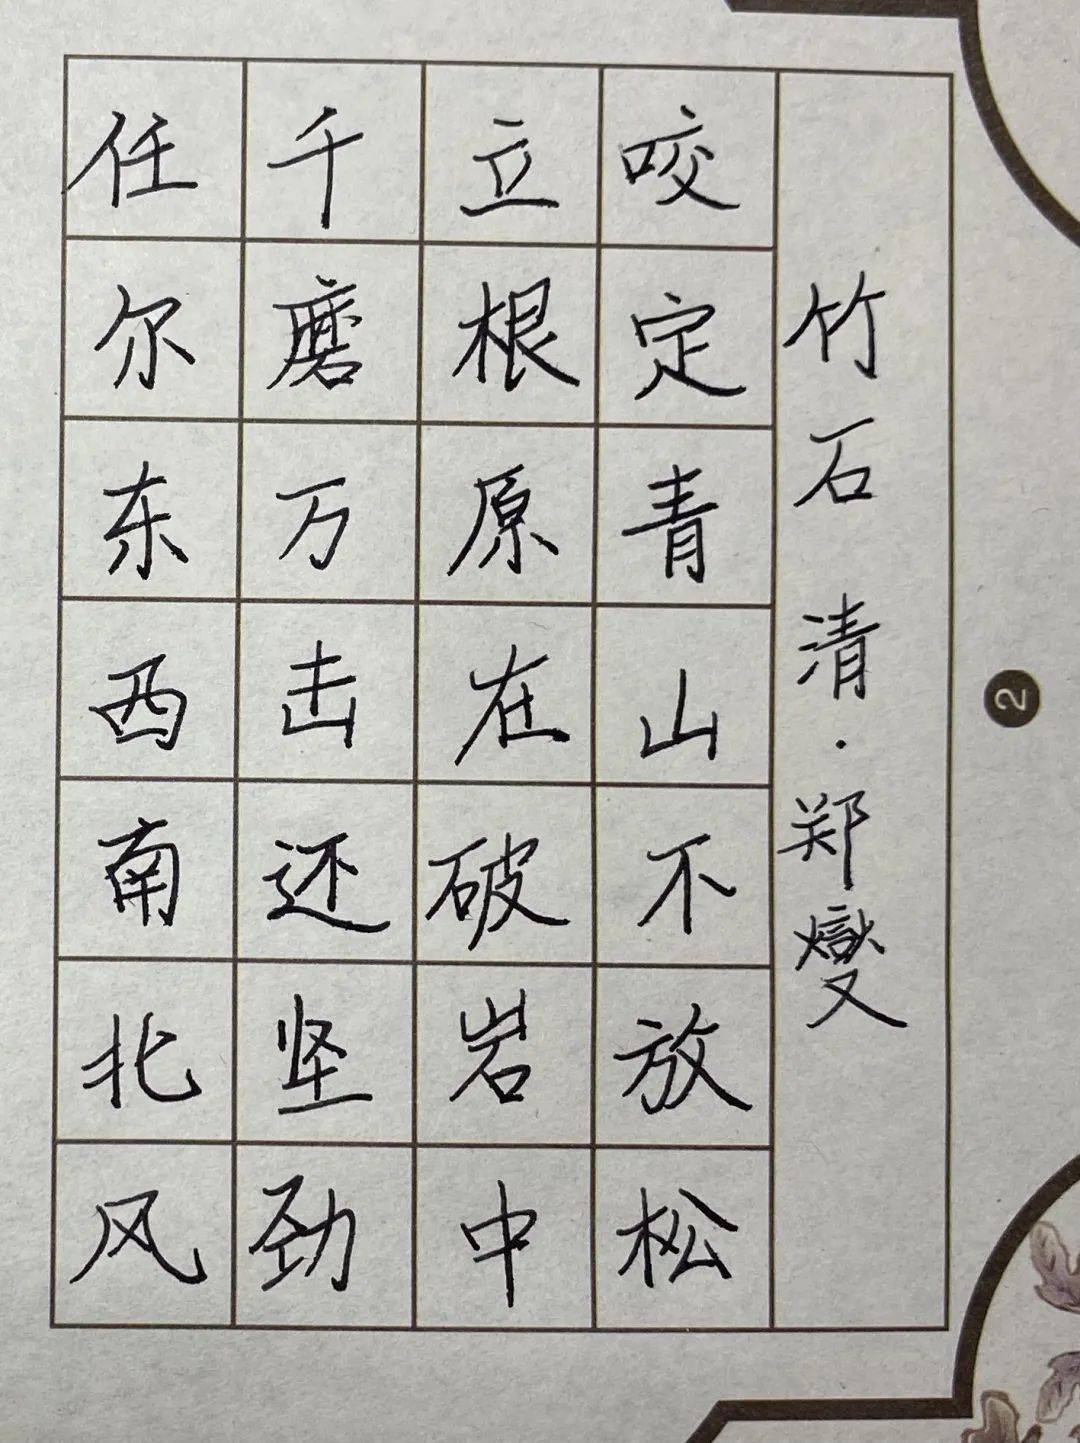 竹石 清·郑燮
咬定青山不放松
立根原在破岩中
千磨万击还坚劲
任尔东西南北风
2